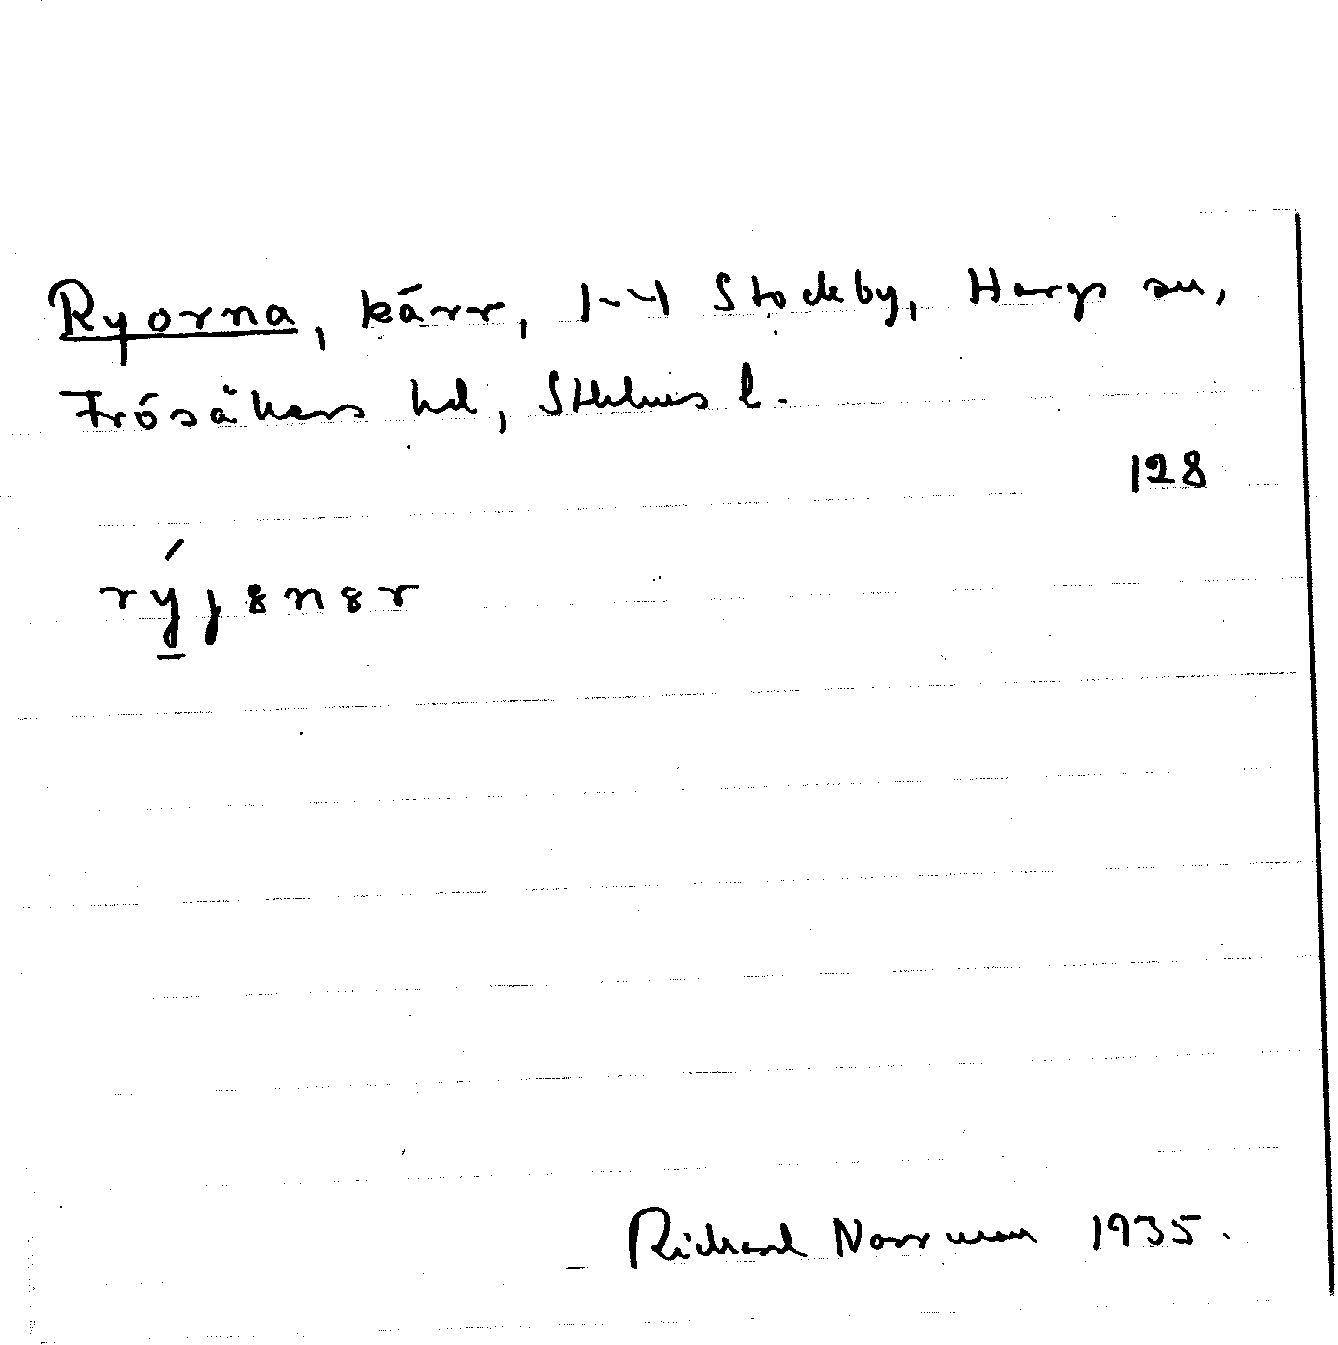 Ryorna, kärr, 1-4 Stockby, Hargs sn,
Frösåkers hd, Sthlms l.
128
rý̱jȣnȣr
Richard Norrman 1935.